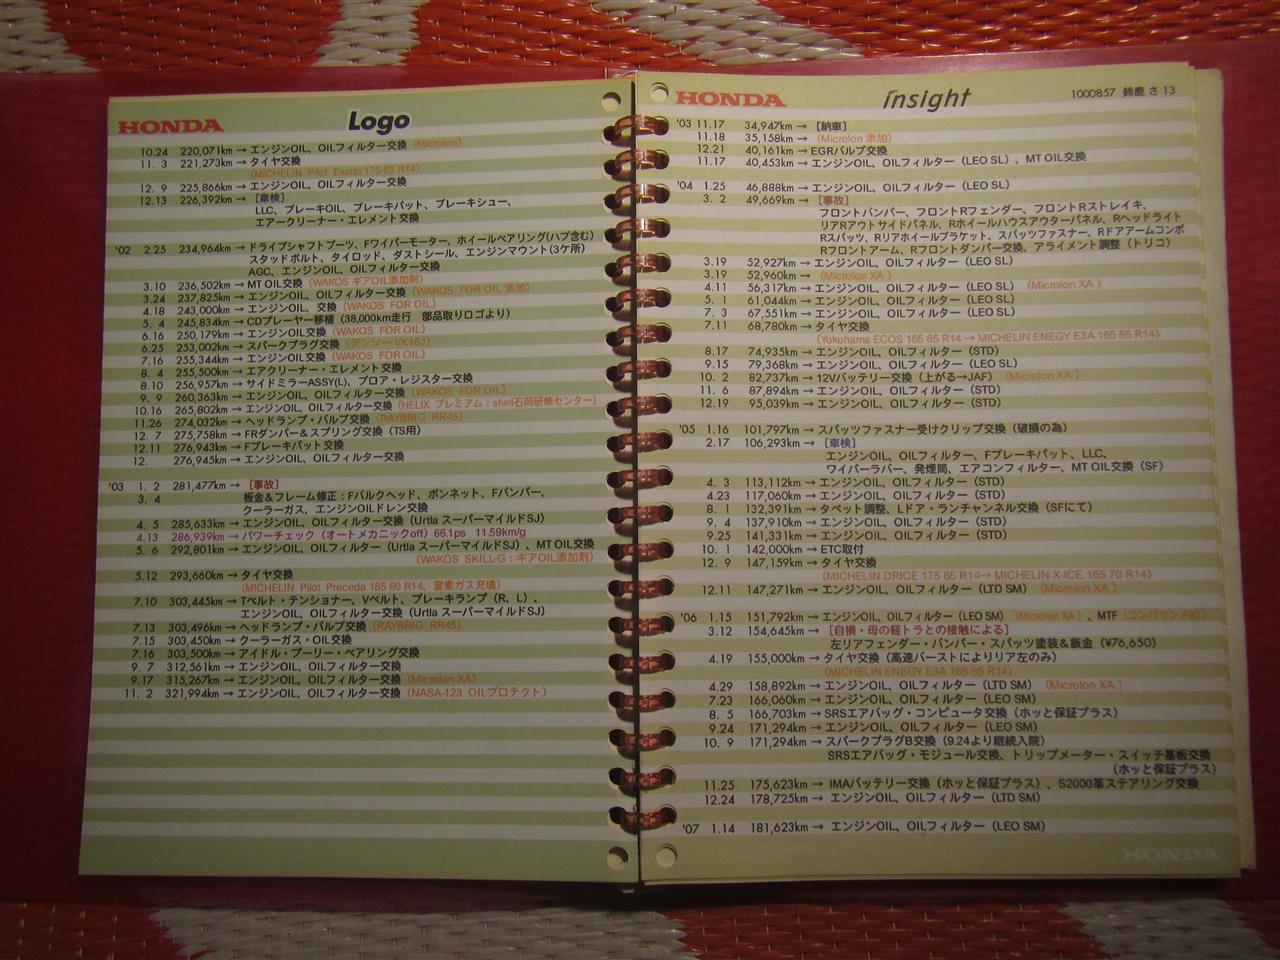 HONDA Logo
10.24 220,071km→エンジンOIL、OILフィルター交換(Microlon)
11. 3 221,273km→タイヤ交換
(MICHELIN Pilot Exalto 175 65 R14)
12. 9 225,866km→エンジンOIL、OILフィルター交換
12.13 226,392km→[車検]
LLC、ブレーキOIL、ブレーキパット、ブレーキシュー、
エアークリーナー・エレメント交換
'02 2.25 234,964km→ドライブシャフトブーツ、Fワイパーモーター、ホイールベアリング(ハブ含む)
スタッドボルト、タイロッド、ダストシール、エンジンマウント(3ケ所)
AGC、エンジンOIL、OILフィルター交換
3.10 236,502km→MT OIL交換(WAKOS ギアOIL添加剤)
3.24 237,825km→エンジンOIL、OILフィルター交換(WAKOS FOR OIL 添加)
4.18 243,000km→エンジンOIL、交換(WAKOS FOR OIL)
5. 4 245,834km→CDプレーヤー移植(38,000km走行 部品取りロゴより)
6.16 250,179km→エンジンOIL交換(WAKOS FOR OIL)
6.25 253,002km→スパークプラグ交換(デンソー VK16J)
7.16 255,344km→エンジンOIL交換(WAKOS FOR OIL)
8. 4 255,500km→エアクリーナー・エレメント交換
8.10 256,957km→サイドミラーASSY(L)、ブロア・レジスター交換
9. 9 260,363km→エンジンOIL、OILフィルター交換(WAKOS FOR OIL)
10.16 265,802km→エンジンOIL、OILフィルター交換(HELIX プレミアム:shell石岡研修センター)
11.26 274,032km→ヘッドランプ・バルブ交換(RAYBRIG RR45)
12. 7 275,758km→FRダンパー&スプリング交換(TS用)
12.11 276,943km→Fブレーキパット交換
12. 276,945km→エンジンOIL、OILフィルター交換
'03 1. 2 281,477km→[事故]
3. 4 板金&フレーム修正:Fバルクヘッド、ボンネット、Fバンパー、
クーラーガス、エンジンOILドレン交換
4. 5 285,633km→エンジンOIL、OILフィルター交換(Urtla スーパーマイルドSJ)
4.13 286,939km→パワーチェック(オートメカニックoff)66.1ps 11.59km/g
5. 6 292,801km→エンジンOIL、OILフィルター(Urtla スーパーマイルドSJ)、MT OIL交換
(WAKOS SKILL-G:ギアOIL添加剤)
5.12 293,660km→タイヤ交換
(MICHELIN Pilot Preceda 185 60 R14、窒素ガス充填)
7.10 303,445km→Tベルト・テンショナー、Vベルト、ブレーキランプ(R、L)、
エンジンOIL、OILフィルター交換(Urtla スーパーマイルドSJ)
7.13 303,496km→ヘッドランプ・バルブ交換(RAYBRIG RR45)
7.15 303,450km→クーラーガス・OIL交換
7.16 303,500km→アイドル・プーリー・ベアリング交換
9. 7 312,561km→エンジンOIL、OILフィルター交換
9.17 315,267km→エンジンOIL、OILフィルター交換(Microlon XA)
11. 2 321,994km→エンジンOIL、OILフィルター交換(NASA-123 OILプロテクト)
HONDA insight 1000857 鈴鹿 さ 13
'03 11.17 34,947km→[納車]
11.18 35,158km→(Microlon 添加)
12.21 40,161km→EGRバルブ交換
11.17 40,453km→エンジンOIL、OILフィルター(LEO SL)、MT OIL交換
'04 1.25 46,888km→エンジンOIL、OILフィルター(LEO SL)
3. 2 49,669km→[事故]
フロントバンパー、フロントRフェンダー、フロントRストレイキ、
リアRアウトサイドパネル、Rホイールハウスアウターパネル、Rヘッドライト
Rスパッツ、Rリアホイールブラケット、スパッツファスナー、Rドアアームコンポ
Rフロントアーム、Rフロントダンパー交換、アライメント調整(トリコ)
3.19 52,927km→エンジンOIL、OILフィルター(LEO SL)
3.19 52,960km→(Microlon XA)
4.11 56,317km→エンジンOIL、OILフィルター(LEO SL)(Microlon XA)
5. 1 61,044km→エンジンOIL、OILフィルター(LEO SL)
7. 3 67,551km→エンジンOIL、OILフィルター(LEO SL)
7.11 68,780km→タイヤ交換
(Yokohama ECOS 165 65 R14→MICHELIN ENEGY E3A 165 65 R14)
8.17 74,935km→エンジンOIL、OILフィルター(STD)
9.15 79,368km→エンジンOIL、OILフィルター(LEO SL)
10. 2 82,737km→12Vバッテリー交換(上がる→JAF)(Microlon XA)
11. 6 87,894km→エンジンOIL、OILフィルター(STD)
12.19 95,039km→エンジンOIL、OILフィルター(STD)
'05 1.16 101,797km→スパッツファスナー受けクリップ交換(破損の為)
2.17 106,293km→[車検]
エンジンOIL、OILフィルター、Fブレーキパット、LLC、
ワイパーラバー、発煙筒、エアコンフィルター、MT OIL交換(SF)
4. 3 113,112km→エンジンOIL、OILフィルター(STD)
4.23 117,060km→エンジンOIL、OILフィルター(STD)
8. 1 132,391km→タペット調整、Lドア・ランチャンネル交換(SFにて)
9. 4 137,910km→エンジンOIL、OILフィルター(STD)
9.25 141,331km→エンジンOIL、OILフィルター(STD)
10. 1 142,000km→ETC取付
12. 9 147,159km→タイヤ交換
(MICHELIN DRICE 175 65 R14→MICHELIN X-ICE 165 70 R14)
12.11 147,271km→エンジンOIL、OILフィルター(LTD SM)(Microlon XA)
'06 1.15 151,792km→エンジンOIL、OILフィルター(LEO SM)(Microlon XA)、MTF(コンパウンド80)
3.12 154,645km→[自損・母の軽トラとの接触による]
左リアフェンダー・バンパー・スパッツ塗装&鈑金(¥76,650)
4.19 155,000km→タイヤ交換(高速バーストによりリア左のみ)
(MICHELIN ENEGY E3A 165 65 R14)
4.29 158,892km→エンジンOIL、OILフィルター(LTD SM)(Microlon XA)
7.23 166,060km→エンジンOIL、OILフィルター(LEO SM)
8. 5 166,703km→SRSエアバッグ・コンピュータ交換(ホッと保証プラス)
9.24 171,294km→エンジンOIL、OILフィルター(LEO SM)
10. 9 171,294km→スパークプラグB交換(9.24より継続入院)
SRSエアバッグ・モジュール交換、トリップメーター・スイッチ基板交換
(ホッと保証プラス)
11.25 175,623km→IMAバッテリー交換(ホッと保証プラス)、S2000革ステアリング交換
12.24 178,725km→エンジンOIL、OILフィルター(LTD SM)
'07 1.14 181,623km→エンジンOIL、OILフィルター(LEO SM)
HONDA